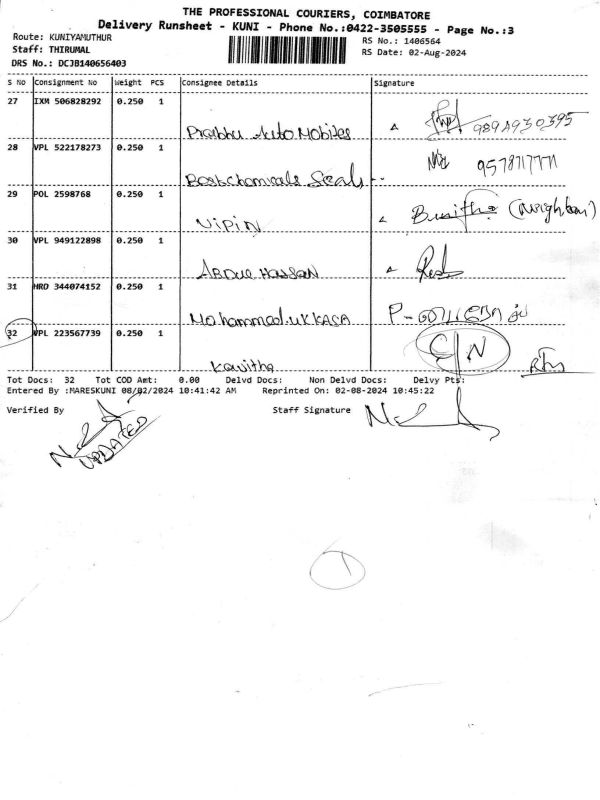 THE PROFESSIONAL COURIERS, COIMBATORE
Delivery Runsheet - KUNI - Phone No.:0422-3505555 - Page No.:3
Route: KUNIYAMUTHUR
RS No.: 1406564
Staff: THIRUMAL
RS Date: 02-Aug-2024
DRS No.: DCJB140656403
S No Consignment No Weight PCS Consignee Details Signature
27 IXM 506828292 0.250 1
Prabhu Auto Mobiles
28 VPL 522178273 0.250 1
Best Chemicals Seals 9578717771
29 POL 2598768 0.250 1
VIPIN (Neighbour)
30 VPL 949122898 0.250 1
ABDUL HASSAN
31 HRD 344074152 0.250 1
Mohammed
32 VPL 223567739 0.250 1
Kavitha
Tot Docs: 32 Tot COD Amt: 0.00 Delvd Docs: Non Delvd Docs: Delvy Pts:
Entered By :MARESKUNI 08/02/2024 10:41:42 AM Reprinted On: 02-08-2024 10:45:22
Verified By Staff Signature
UPDATED